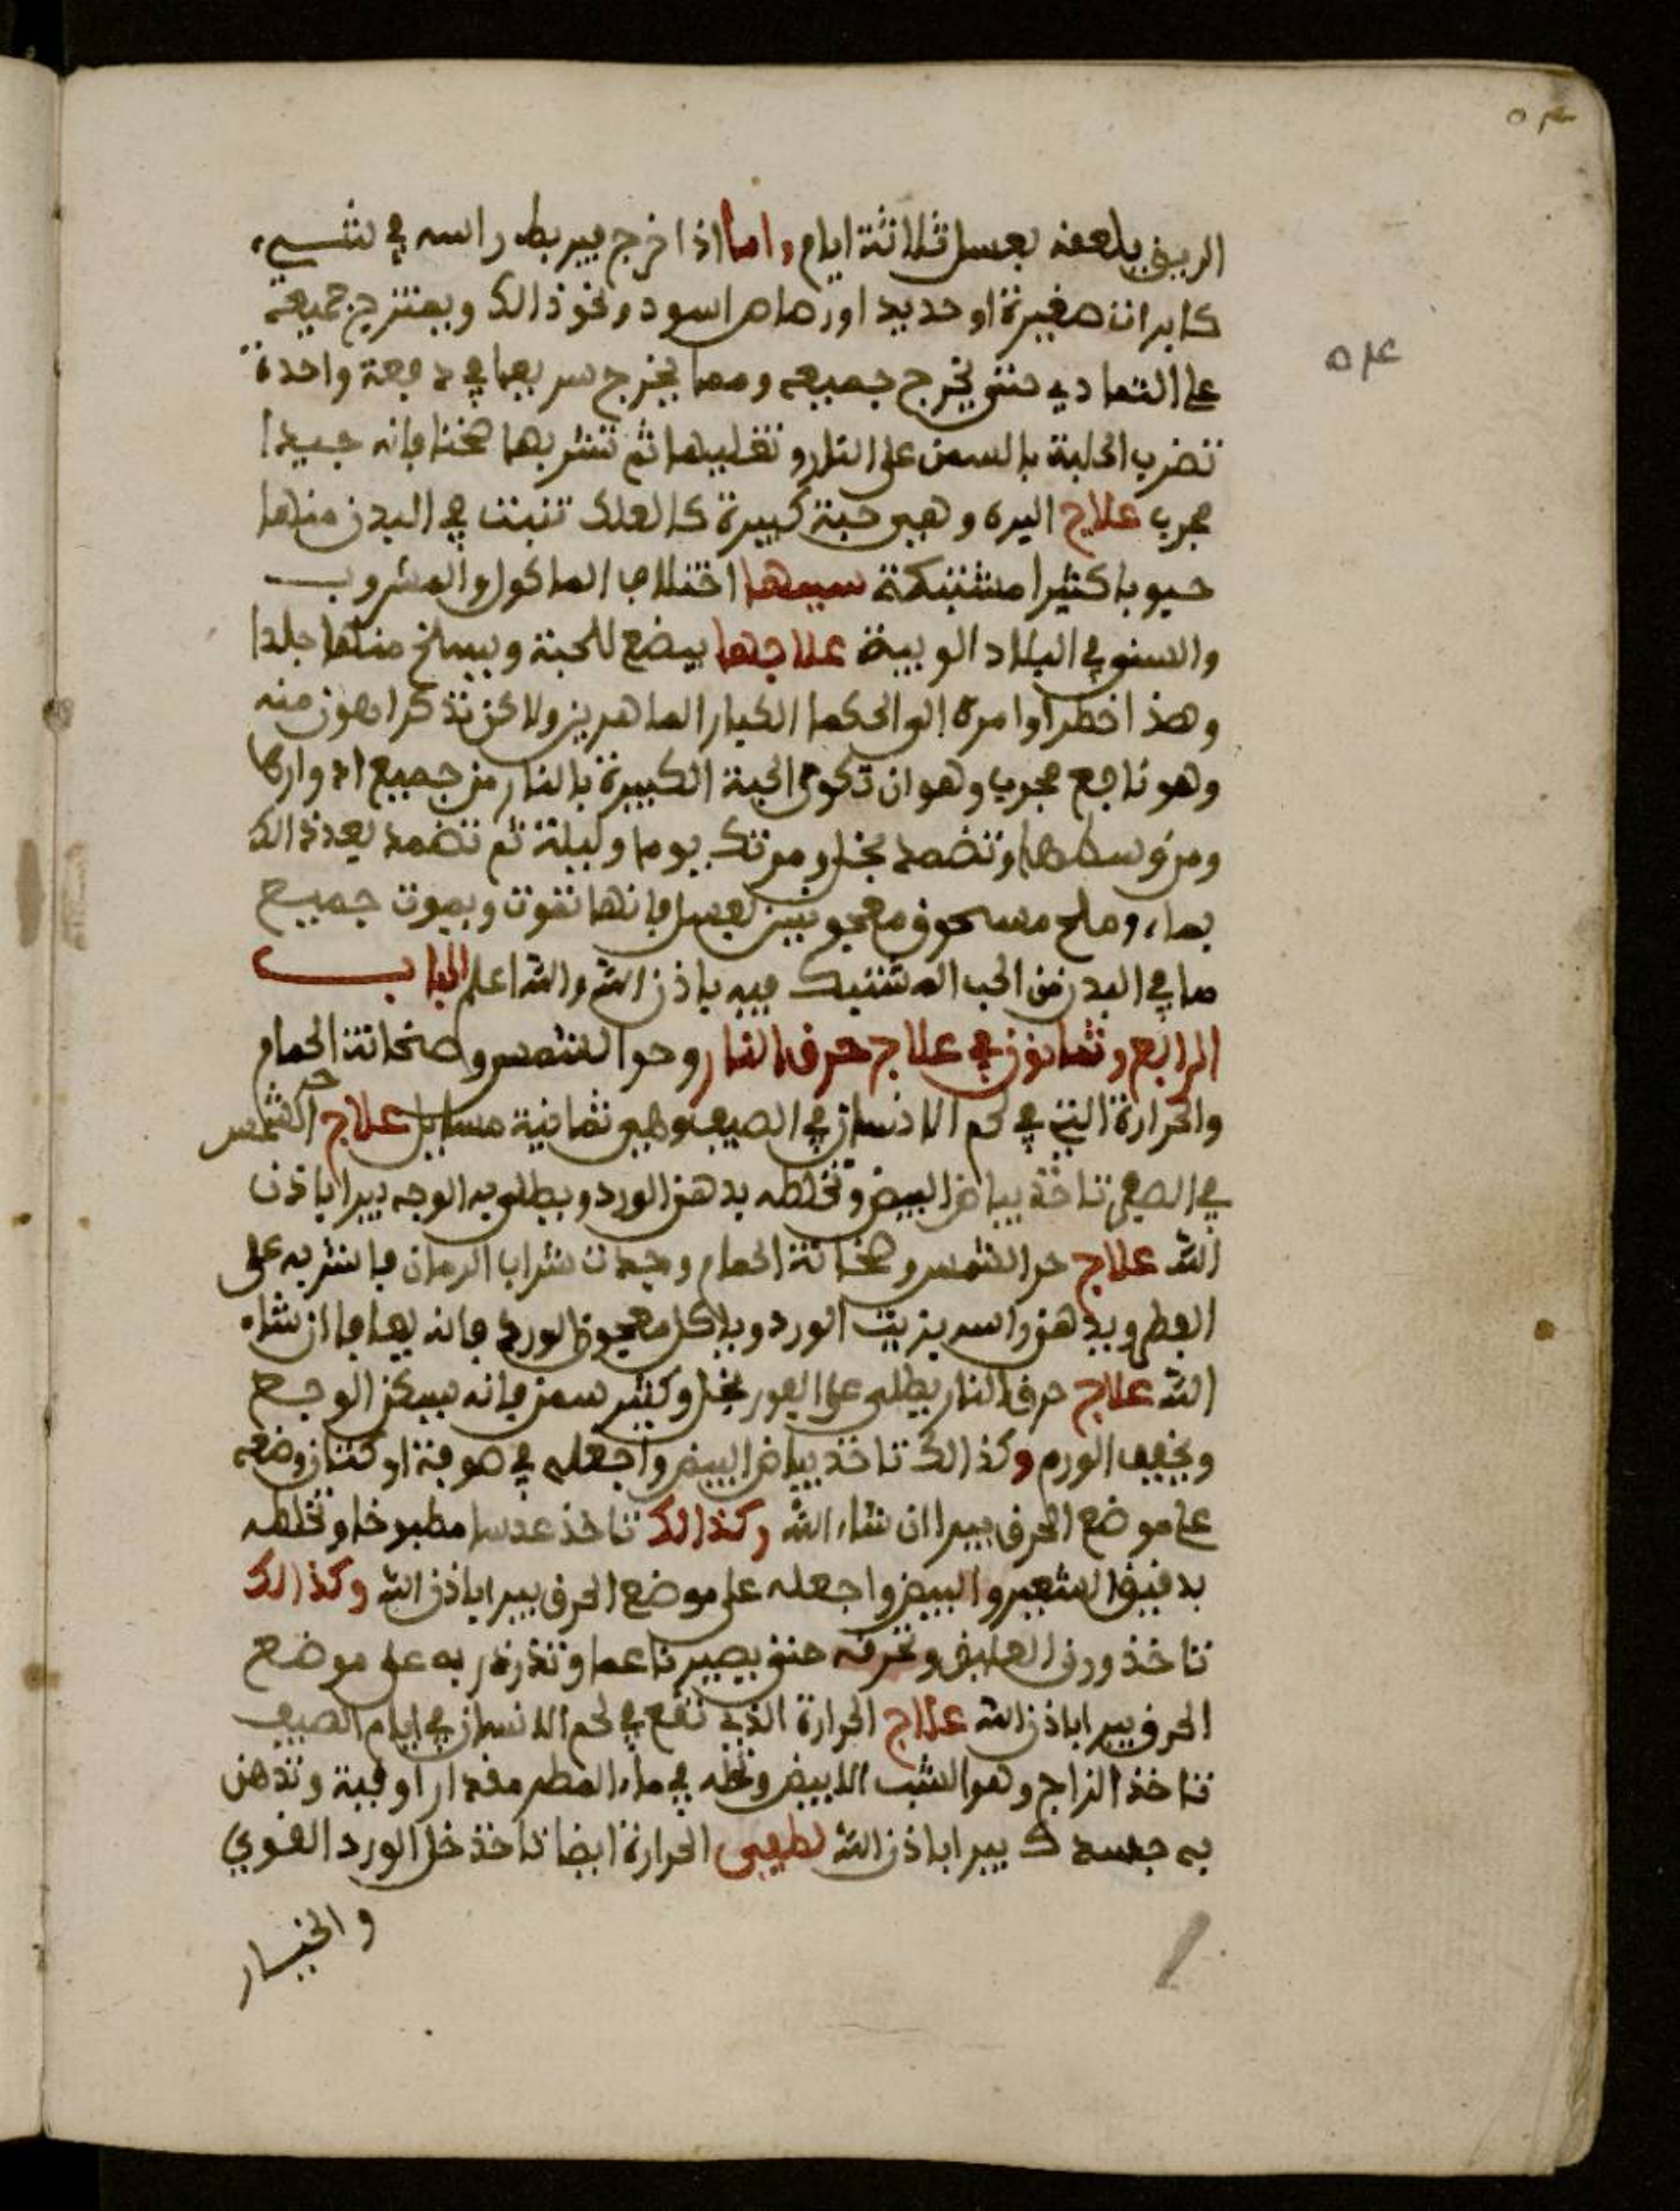 ٥٤
الريق يلعقه بعسل ثلاثة ايام واما اذا خرج فيربط راسه في شيء
كابرات صغيرة او حديد او رصاص اسود ونحو ذالك ويفتر جميعه
٥٤
على التمادي حتى يخرج جميعه ومما يخرج سريعا في دفعة واحدة
تضرب الحلبة بالسمن على النار وتغليها ثم تشربها سخنا فانه جيدا
مجرب علاج اليره وهي حبة كبيرة كالعلك تنبت في البدن منها
حبوبا كثيرا مشتبكة سببها اختلاف الماكول والمشروب
والسنو في البلاد الوبية علاجها يبضع للحبة ويسلخ منها جلدا
وهذا خطر اوامره الى الحكما الكبار الماهرين ولاكن نذكر اهون منه
وهو ناجع مجرب وهو ان تكوى الحبة الكبيرة بالنار من جميع ادوارها
ومن وسطها وتضمد بخل ومرتك يوما وليلة ثم تضمد بعد ذالك
بماء وملح مسحوق معجونين بعسل فانها تفوت ويموت جميع
ما في البدن من الحب المشتبك فيه باذن الله والله اعلم الباب
الرابع وثمانون في علاج حرق النار وحر الشمس وسخانة الحمام
والحرارة التي في لحم الانسان في الصيف وهي ثمانية مسايل علاج حر الشمس
في الصيف تاخذ بياض البيض وتخلطه بدهن الورد ويطلى به الوجه يبرا باذن
الله علاج حر الشمس وسخانة الحمام وجدت شراب الرمان فاشربه على
الفطر ويدهن راسه بزيت الورد وياكل معجون الورد فانه يعافا ان شاء
الله علاج حرق النار يطلى على الفور بخل وكثير سمن فانه يسكن الوجع
ويخفف الورم وكذالك تاخذ بياض البيض واجعله في صوفة او كتان وضعه
على موضع الحرق يبرا ان شاء الله وكذالك تاخذ عدسا مطبوخا وتخلطه
بدقيق الشعير والبيض واجعله على موضع الحرق يبرا باذن الله وكذالك
تاخذ ورق العليق وتحرقه حتى يصير ناعما وتذرذر به على موضع
الحرق يبرا باذن الله علاج الحرارة الذي تقع في لحم الانسان في ايام الصيف
تاخذ الزاج وهو الشب الابيض وتحله في ماء المطر مقدار اوقية وتدهن
به جسدك يبرا باذن الله لطفي الحرارة ايضا تاخذ خل الورد القوي
والخيار